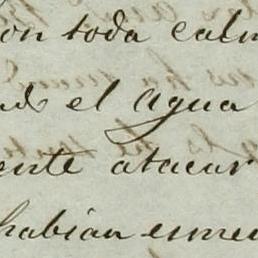 con toda calm
el agua
ente atacar
habian esme